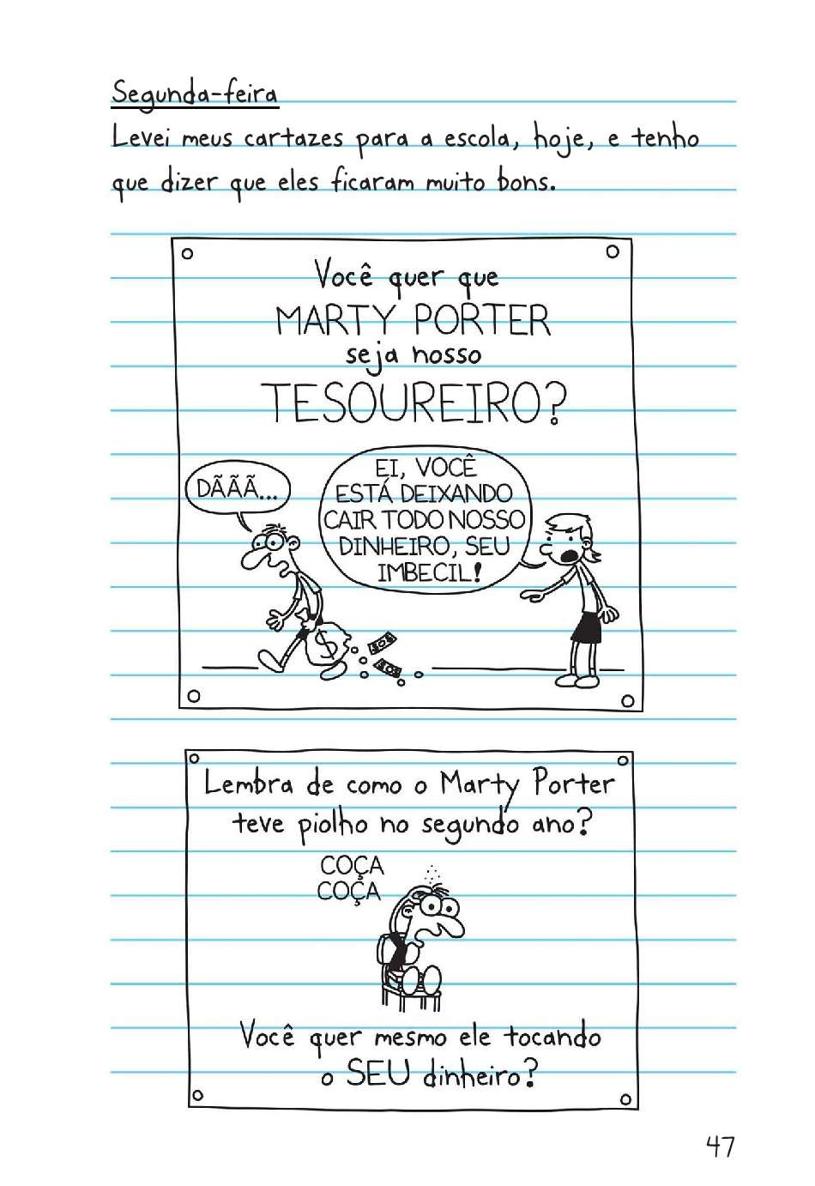 Segunda-feira
Levei meus cartazes para a escola, hoje, e tenho
que dizer que eles ficaram muito bons.
Você quer que
MARTY PORTER
seja nosso
TESOUREIRO?
DÃÃÃ...
EI, VOCÊ
ESTÁ DEIXANDO
CAIR TODO NOSSO
DINHEIRO, SEU
IMBECIL!
$
Lembra de como o Marty Porter
teve piolho no segundo ano?
COÇA
COÇA
Você quer mesmo ele tocando
o SEU dinheiro?
47